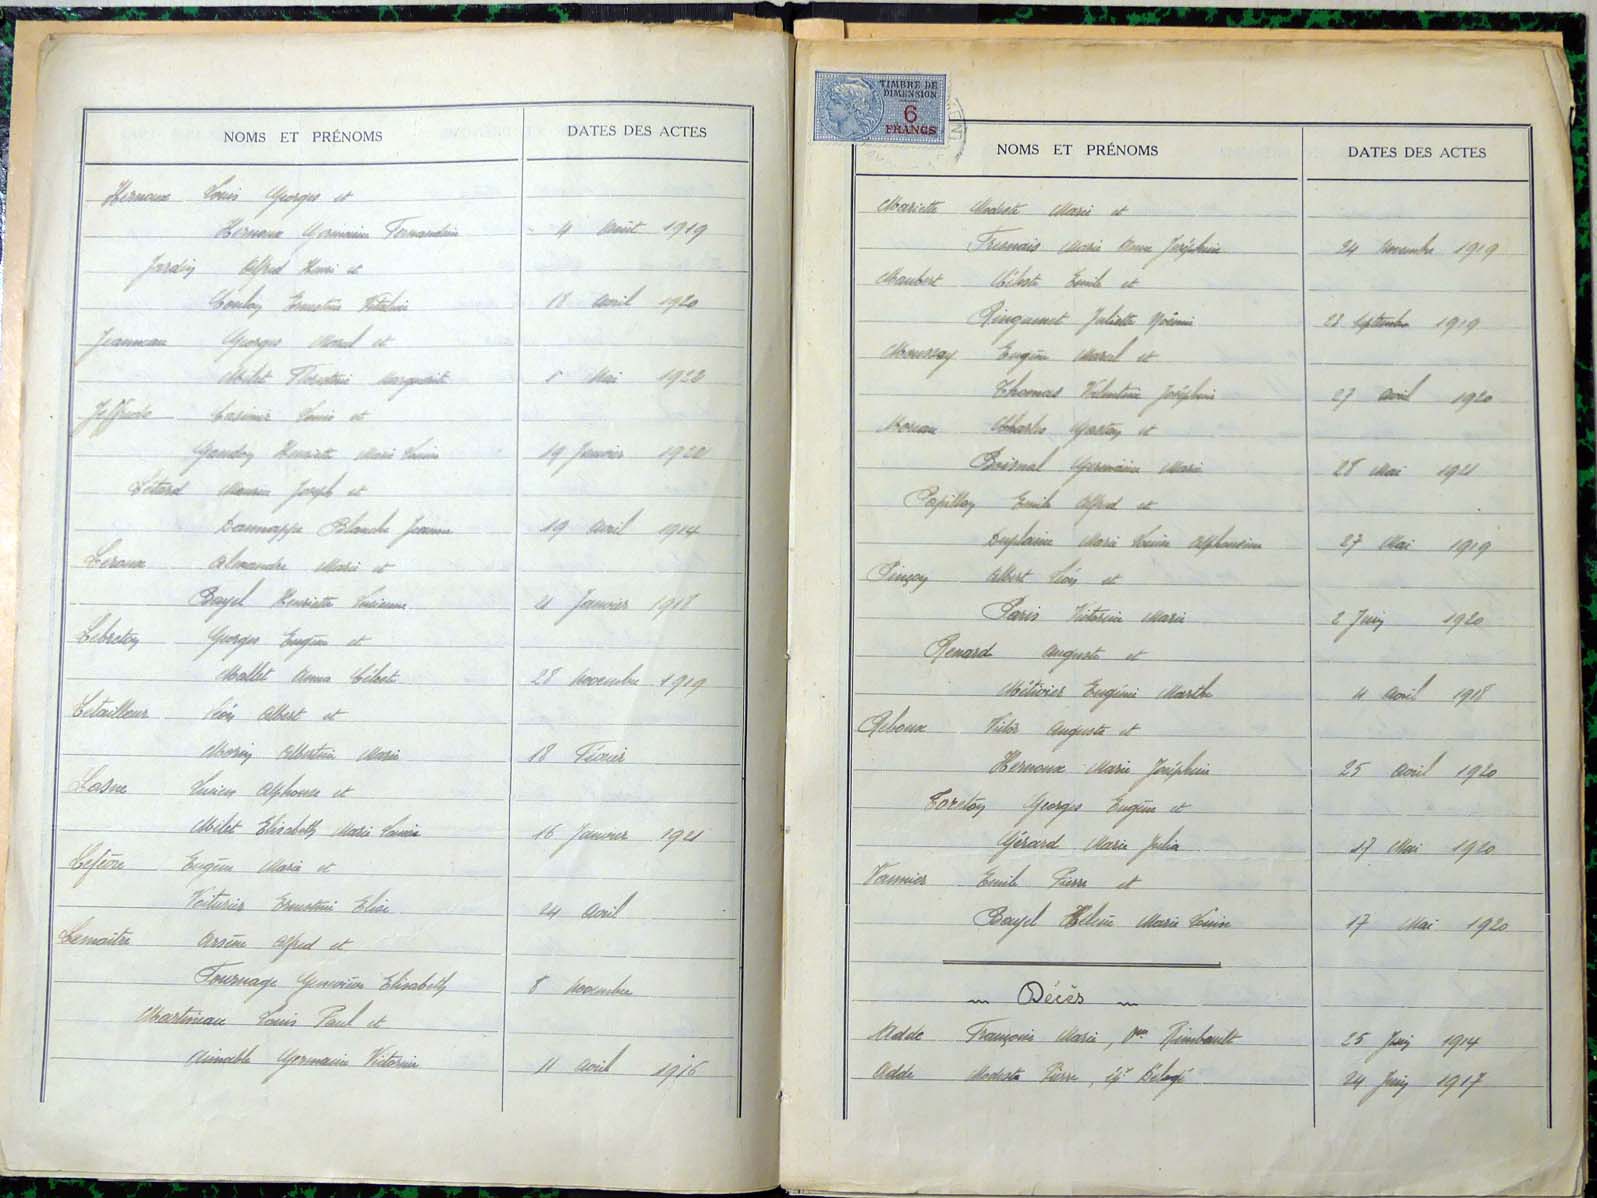 NOMS ET PRÉNOMS DATES DES ACTES
Hernoux Louis Georges et
Hernoux Germaine Fernandine 4 Août 1919
Jardin Alfred Henri et
Ernestine 18 Avril 1920
Jeanneau Georges Marcel et
Milet Florentine Marguerite Mai 1920
Casimir Louis et
Gandon Henriette Marie Louise 19 Janvier 1920
Létard Maurice Joseph et
Blanche Jeanne 19 Avril 1914
Leroux Alexandre Marie et
Bayel Henriette Lucienne 21 Janvier 1918
Lebreton Georges Eugène et
Mallet Anna Céleste 28 Novembre 1919
Létailleur Léon Albert et
Morin Albertine Marie 18 Février
Lasne Lucien Alphonse et
Milet Elisabeth Marie Louise 16 Janvier 1921
Lefèvre Eugène Marie et
Voiturier Ernestine Elise 24 Avril
Lemaître Arsène Alfred et
Fournage Geneviève Elisabeth 8 Novembre
Martineau Louis Paul et
Aimable Germaine Victorine 11 Avril 1916
TIMBRE DE
DIMENSION
6
FRANCS
NOMS ET PRÉNOMS DATES DES ACTES
Mariette Modeste Marie et
Fresnais Marie Anne Joséphine 24 Novembre 1919
Maubert Céleste Emile et
Ringuenet Juliette Noémie 23 Septembre 1919
Moussay Eugène Marcel et
Thomas Valentine Joséphine 27 Avril 1920
Moreau Charles Gaston et
Boisnal Germaine Marie 28 Mai 1921
Papillon Emile Alfred et
Duplaine Marie Louise Alphonsine 27 Mai 1919
Pinçon Albert Léon et
Paris Victorine Marie 2 Juin 1920
Renard Auguste et
Métivier Eugénie Marthe 4 Avril 1918
Reboux Victor Auguste et
Hernoux Marie Joséphine 25 Avril 1920
Toreton Georges Eugène et
Gérard Marie Julia 17 Mai 1920
Vannier Emile Pierre et
Bayel Hélène Marie Louise 17 Mai 1920
Décès
Adde Françoise Marie, Vve Rimbault 25 Juin 1914
Adde Modeste Pierre, ép. Délogé 24 Juin 1917